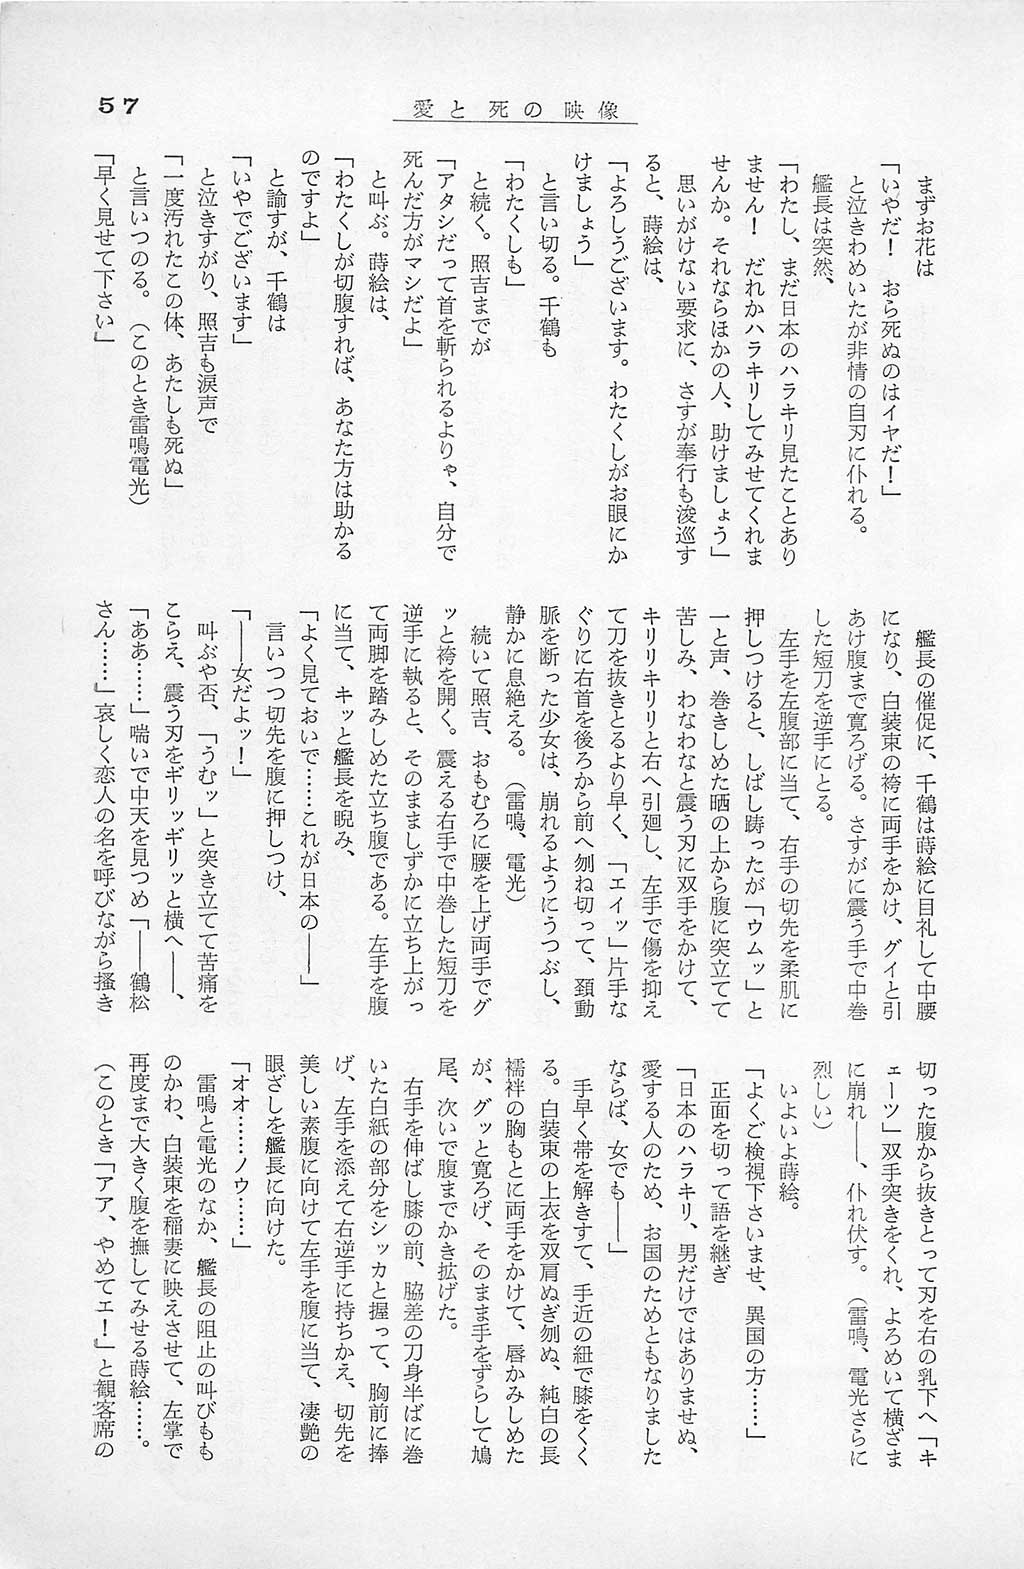 57
愛と死の映像
まずお花は
「いやだ！　おら死ぬのはイヤだ！」
と泣きわめいたが非情の自刃に仆れる。
艦長は突然、
「わたし、まだ日本のハラキリ見たことあり
ません！　だれかハラキリしてみせてくれま
せんか。それならほかの人、助けましょう」
思いがけない要求に、さすが奉行も浚巡す
ると、蒔絵は、
「よろしうございます。わたくしがお眼にか
けましょう」
と言い切る。千鶴も
「わたくしも」
と続く。照吉までが
「アタシだって首を斬られるよりゃ、自分で
死んだ方がマシだよ」
と叫ぶ。蒔絵は、
「わたくしが切腹すれば、あなた方は助かる
のですよ」
と諭すが、千鶴は
「いやでございます」
と泣きすがり、照吉も涙声で
「一度汚れたこの体、あたしも死ぬ」
と言いつのる。（このとき雷鳴電光）
「早く見せて下さい」
艦長の催促に、千鶴は蒔絵に目礼して中腰
になり、白装束の袴に両手をかけ、グイと引
あけ腹まで寛ろげる。さすがに震う手で中巻
した短刀を逆手にとる。
左手を左腹部に当て、右手の切先を柔肌に
押しつけると、しばし躊ったが「ウムッ」と
一と声、巻きしめた晒の上から腹に突立てて
苦しみ、わなわなと震う刃に双手をかけて、
キリリキリリと右へ引廻し、左手で傷を抑え
て刀を抜きとるより早く、「エイッ」片手な
ぐりに右首を後ろから前へ刎ね切って、頚動
脈を断った少女は、崩れるようにうつぶし、
静かに息絶える。（雷鳴、電光）
続いて照吉、おもむろに腰を上げ両手でグ
ッと袴を開く。震える右手で中巻した短刀を
逆手に執ると、そのまましずかに立ち上がっ
て両脚を踏みしめた立ち腹である。左手を腹
に当て、キッと艦長を睨み、
「よく見ておいで……これが日本の――」
言いつつ切先を腹に押しつけ、
「――女だよッ！」
叫ぶや否、「うむッ」と突き立てて苦痛を
こらえ、震う刃をギリッギリッと横へ――、
「ああ……」喘いで中天を見つめ「――鶴松
さん………」哀しく恋人の名を呼びながら掻き
切った腹から抜きとって刃を右の乳下へ「キ
ェーツ」双手突きをくれ、よろめいて横ざま
に崩れ――、仆れ伏す。（雷鳴、電光さらに
烈しい）
いよいよ蒔絵。
「よくご検視下さいませ、異国の方………」
正面を切って語を継ぎ
「日本のハラキリ、男だけではありませぬ、
愛する人のため、お国のためともなりました
ならば、女でも――」
手早く帯を解きすて、手近の紐で膝をくく
る。白装束の上衣を双肩ぬぎ刎ぬ、純白の長
襦袢の胸もとに両手をかけて、唇かみしめた
が、グッと寛ろげ、そのまま手をずらして鳩
尾、次いで腹までかき拡げた。
右手を伸ばし膝の前、脇差の刀身半ばに巻
いた白紙の部分をシッカと握って、胸前に捧
げ、左手を添えて右逆手に持ちかえ、切先を
美しい素腹に向けて左手を腹に当て、凄艶の
眼ざしを艦長に向けた。
「オオ………ノウ………」
雷鳴と電光のなか、艦長の阻止の叫びもも
のかわ、白装束を稲妻に映えさせて、左掌で
再度まで大きく腹を撫してみせる蒔絵……。
（このとき「アア、やめてェ！」と観客席の